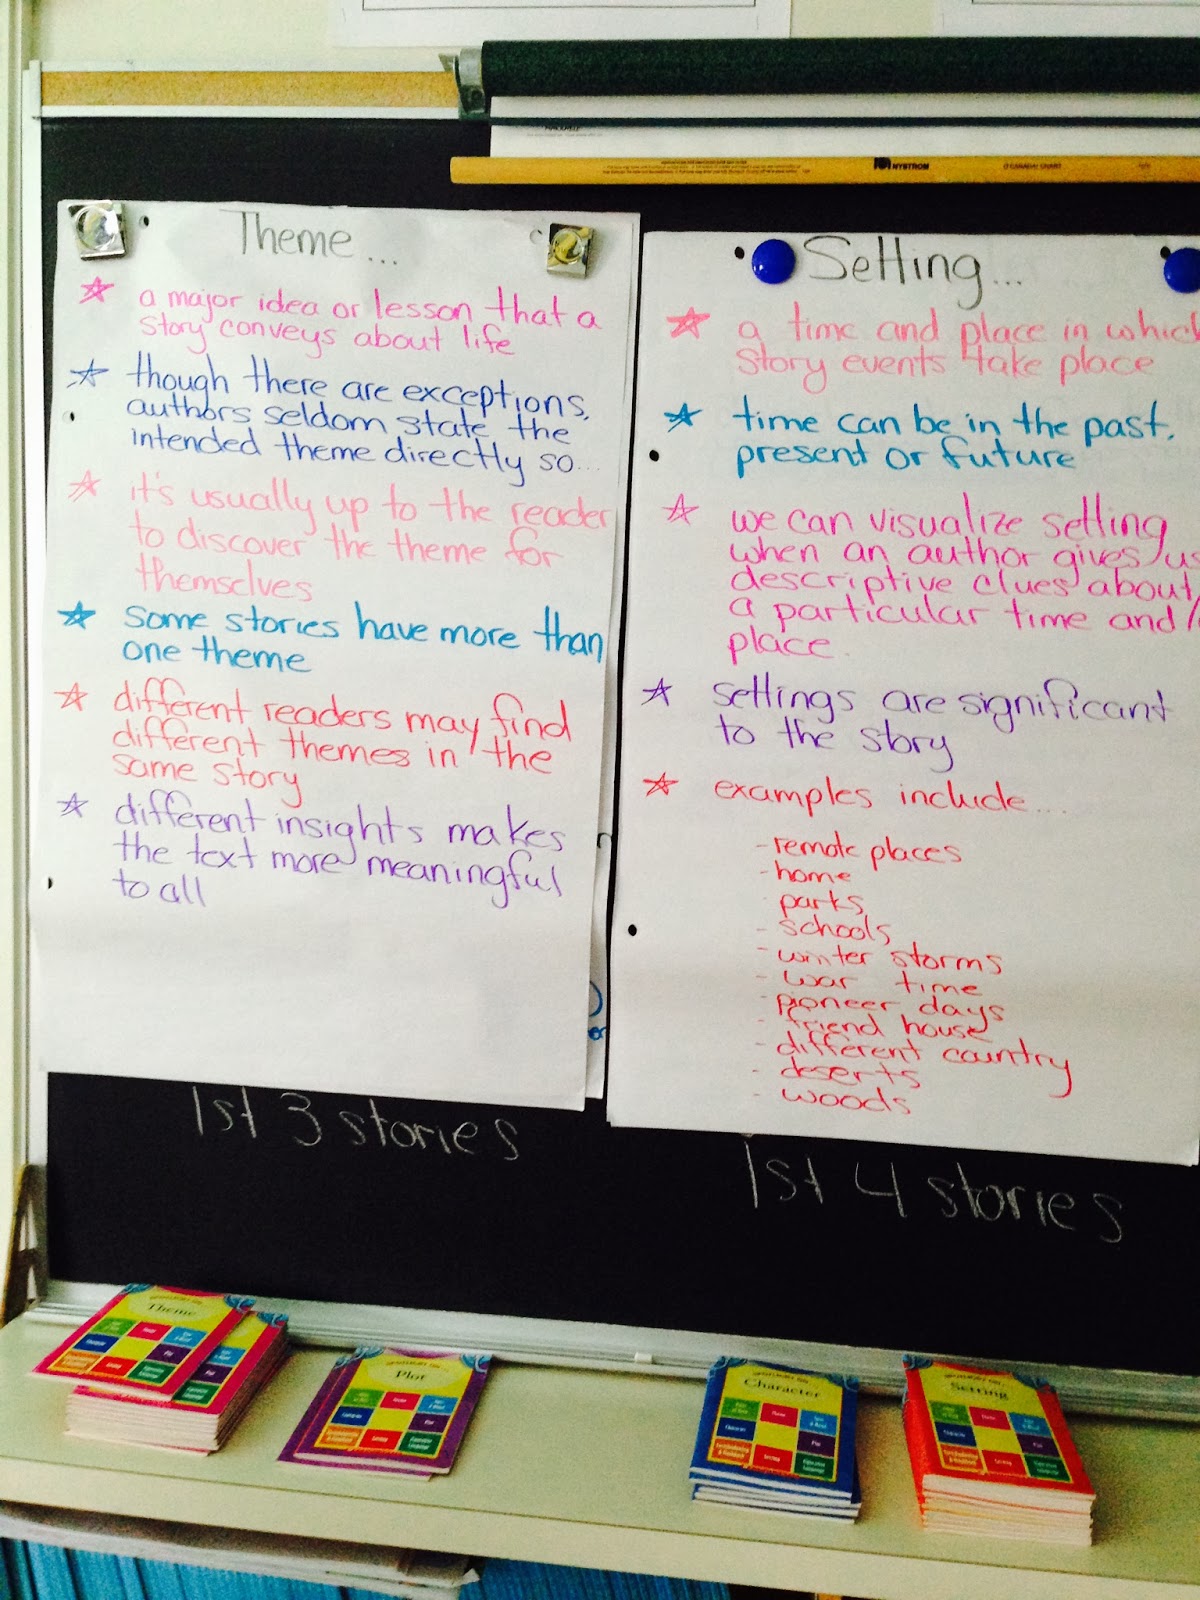 NYSTROM
Theme...
☆ a major idea or lesson that a
story conveys about life
☆ though there are exceptions,
authors seldom state the
intended theme directly so...
☆ it's usually up to the reader
to discover the theme for
themselves
☆ some stories have more than
one theme
☆ different readers may find
different themes in the
same story
☆ different insights makes
the text more meaningful
to all
1st 3 stories
Setting...
☆ a time and place in which
story events take place
☆ time can be in the past,
present or future
☆ we can visualize setting
when an author gives us
descriptive clues about
a particular time and/
place.
☆ settings are significant
to the story
☆ examples include...
- remote places
- home
parks
- schools
- winter storms
- war time
- pioneer days
- friend house
- different country
- deserts
- woods
1st 4 stories
Theme
Plot
Character
Setting